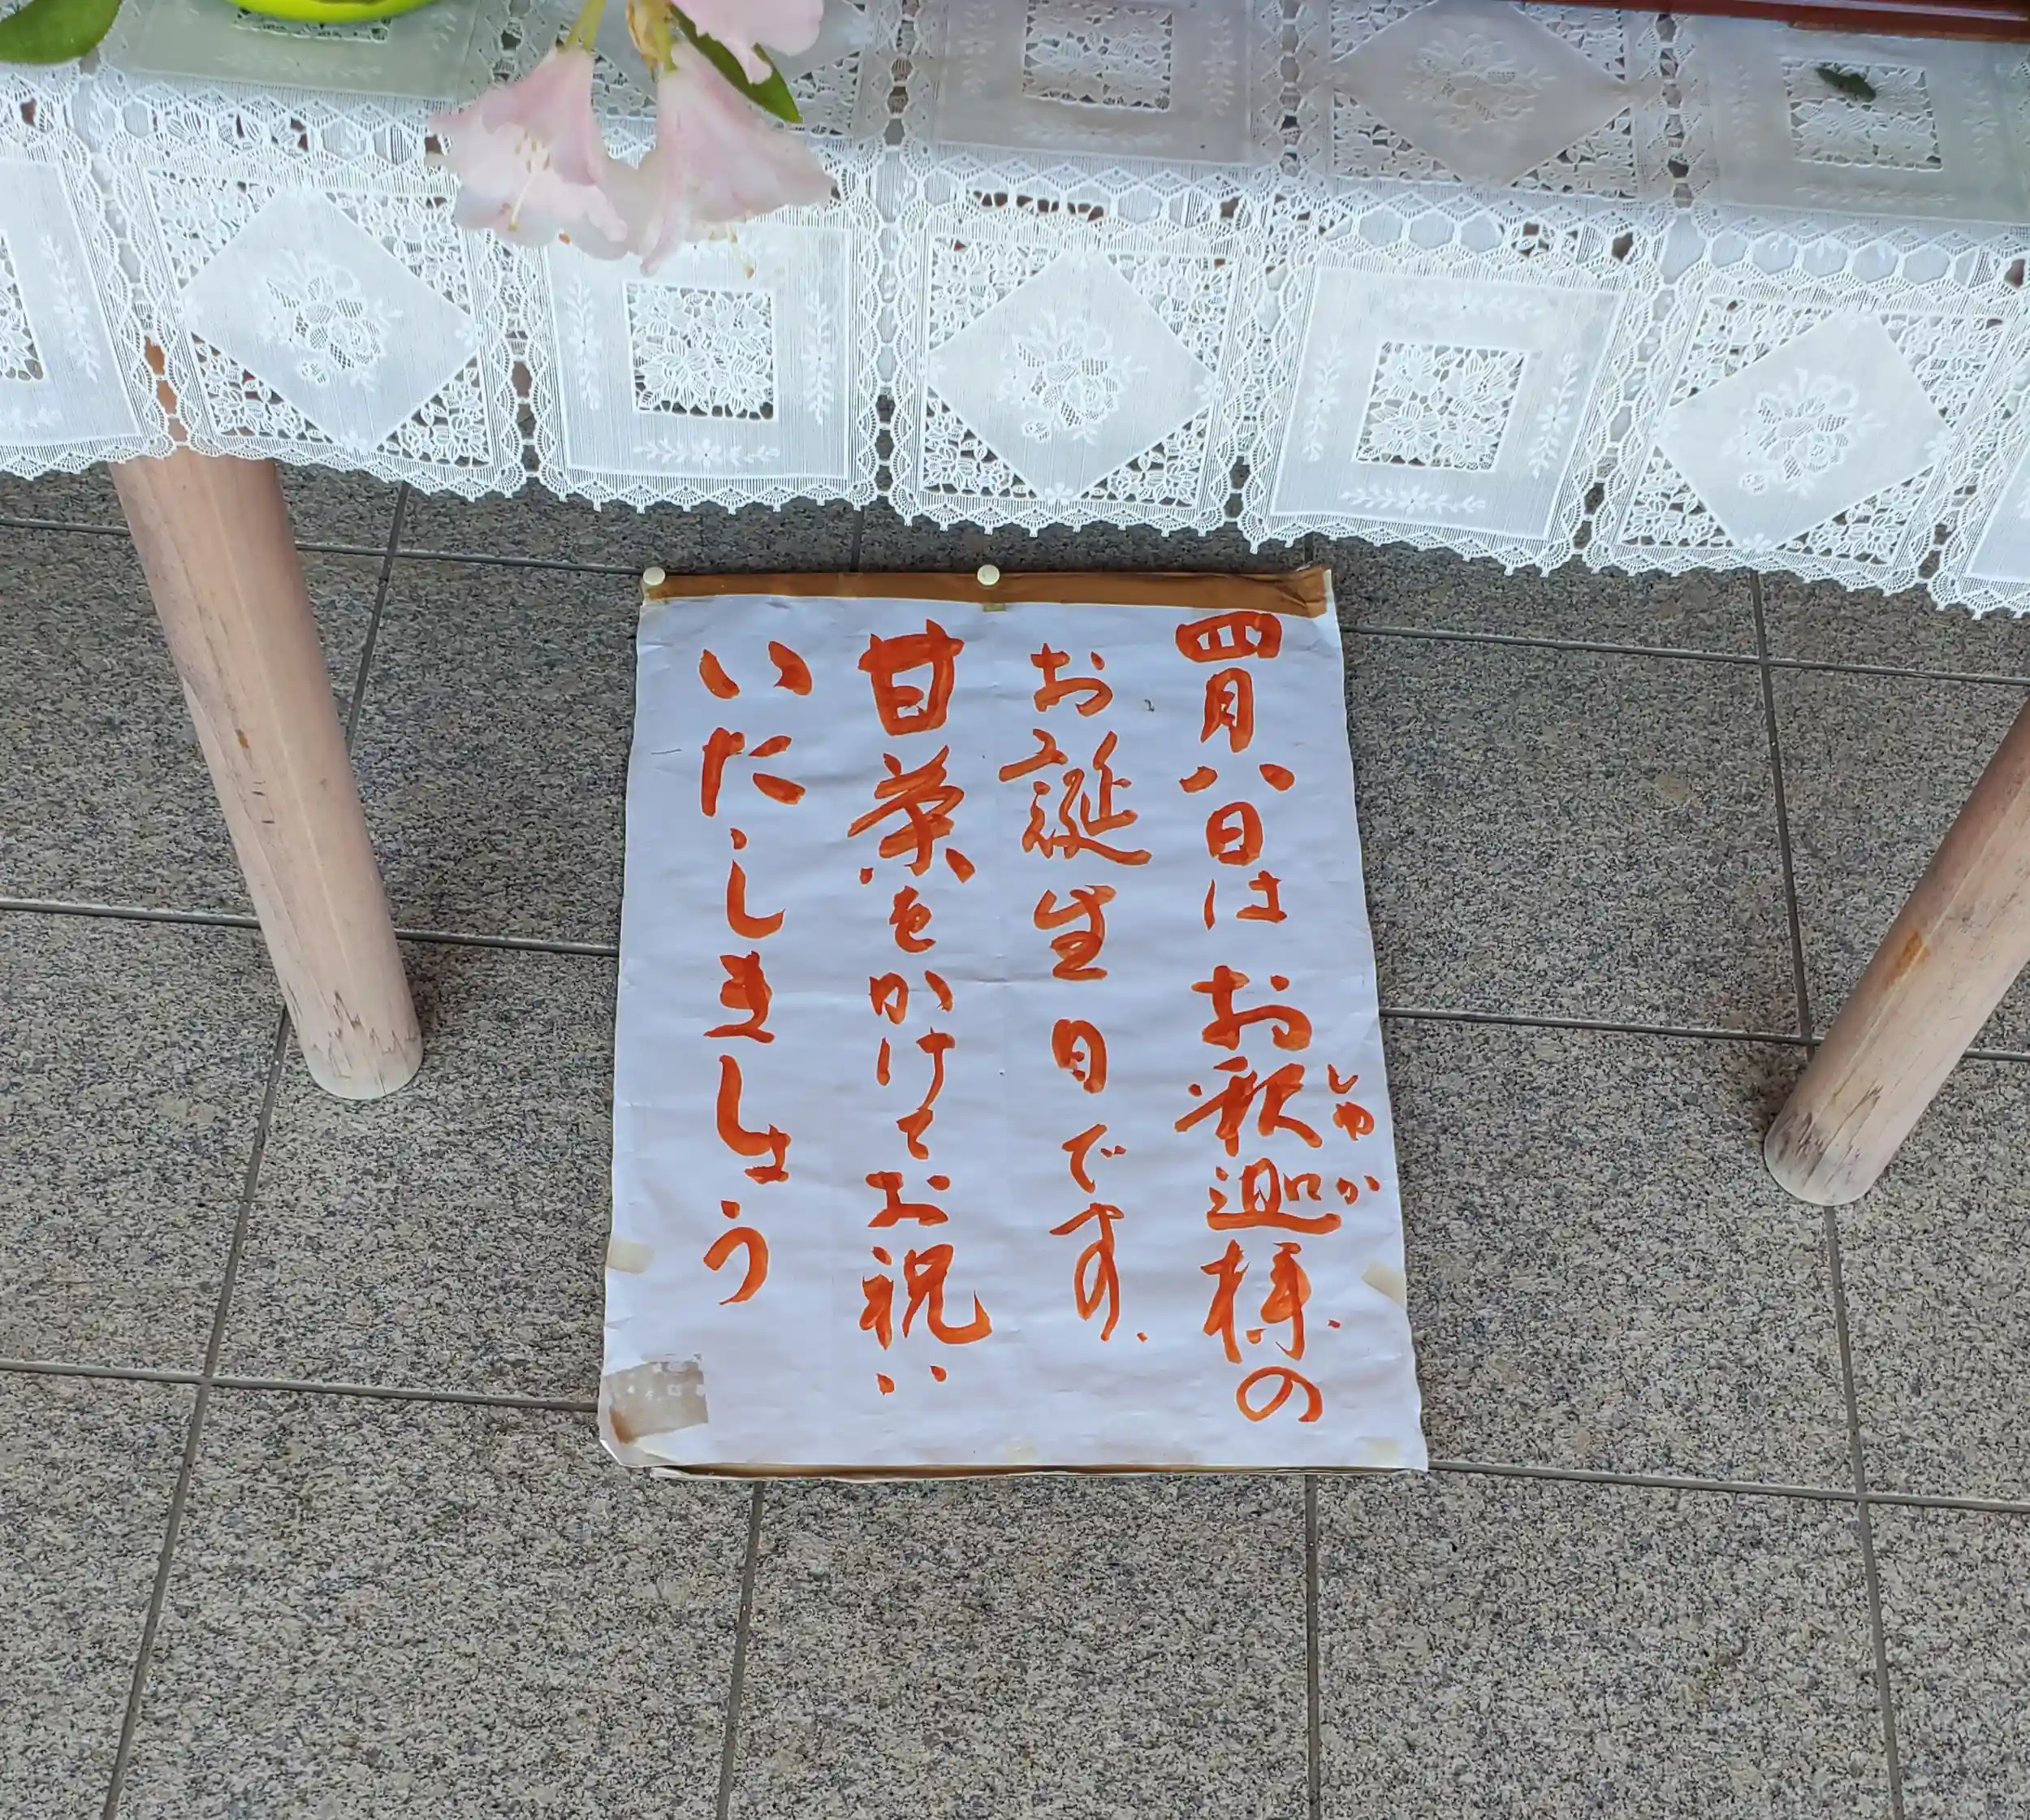 四月八日はお釈迦様の
しゃか
お誕生日です、
甘茶をかけてお祝い
いたしましょう